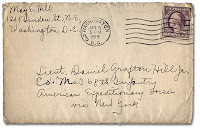 May E. Hill
1216 Linden St. N.E.
Washington, D.C.
WASHINGTON
D.C.
Lieut. Daniel Grafton Hill Jr.
Co. M 368th Infantry
American Expeditionary Forces
via New York